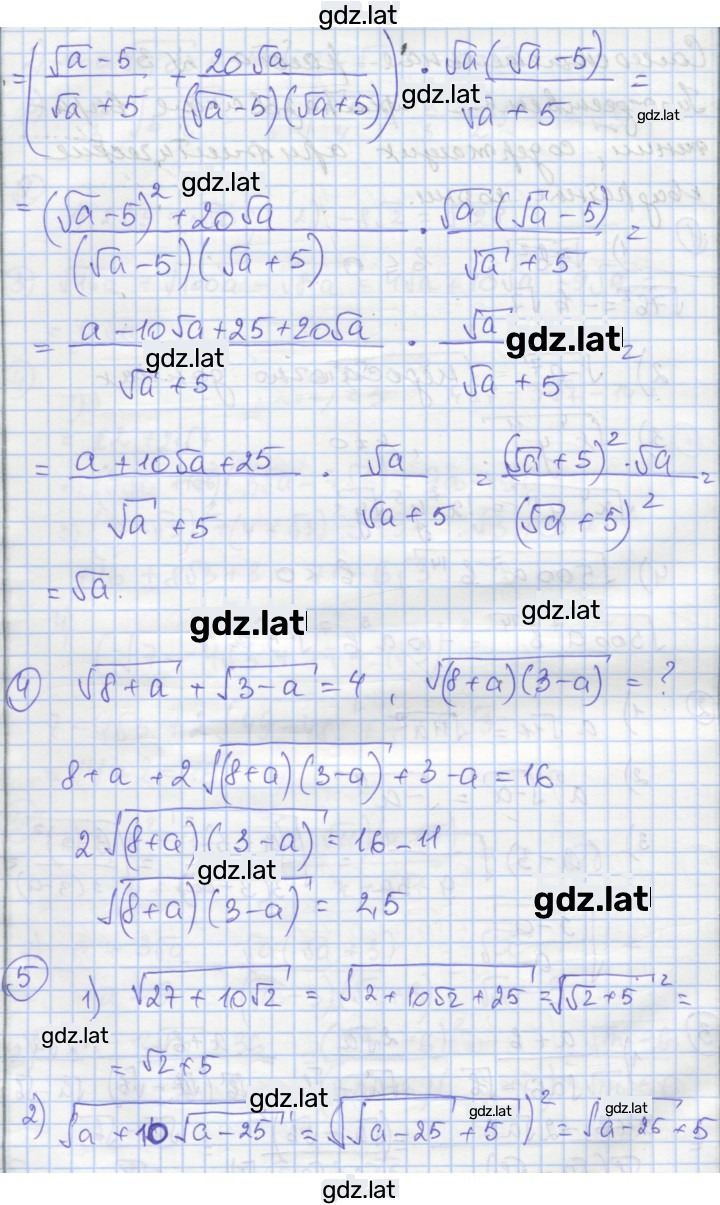 gdz.lat
= ( (√a - 5)/(√a + 5) + 20√a/((√a - 5)(√a + 5)) ) · √a(√a - 5)/(√a + 5) =
gdz.lat
gdz.lat
gdz.lat
= ((√a - 5)² + 20√a)/((√a - 5)(√a + 5)) · √a(√a - 5)/(√a + 5) =
= (a - 10√a + 25 + 20√a)/(√a + 5) · √a/(√a + 5) =
gdz.lat
gdz.lat
= (a + 10√a + 25)/(√a + 5) · √a/(√a + 5) = ((√a + 5)² · √a)/(√a + 5)² =
= √a.
gdz.lat
gdz.lat
4 √(8+a) + √(3-a) = 4, √((8+a)(3-a)) = ?
8+a + 2√((8+a)(3-a)) + 3-a = 16
2√((8+a)(3-a)) = 16 - 11
gdz.lat
gdz.lat
√((8+a)(3-a)) = 2,5
5 1) √(27 + 10√2) = √(2 + 10√2 + 25) = √(√2 + 5)² =
gdz.lat
= √2 + 5
gdz.lat
2) √(a + 10√(a-25)) = √(√(a-25) + 5)² = √(a-25) + 5
gdz.lat
gdz.lat
gdz.lat